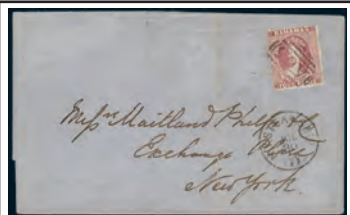 BAHAMAS
Messrs Maitland Phelps & Co
Exchange Place
New York.